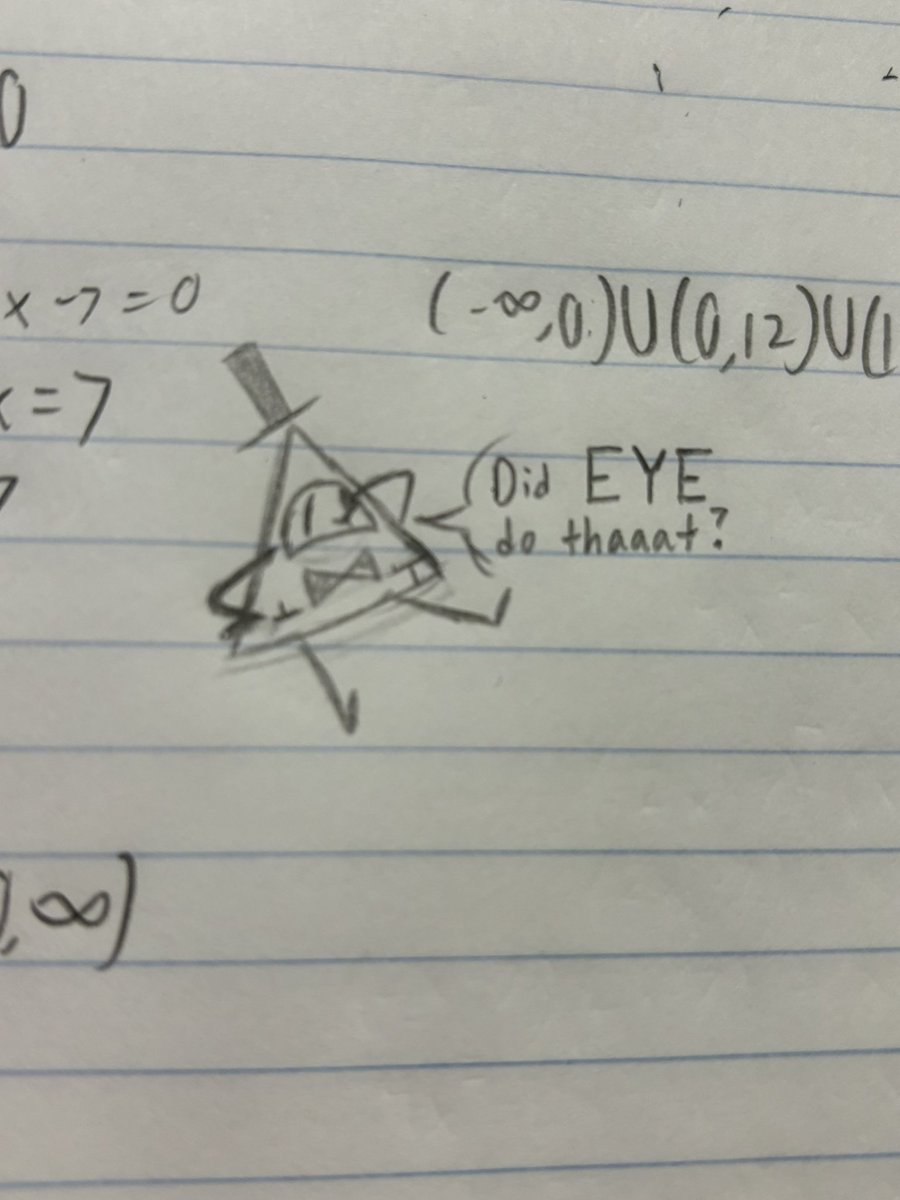 0
x - 7 = 0
(-∞,0)U(0,12)U(1
x = 7
7
Did EYE
do thaaat?
,∞)